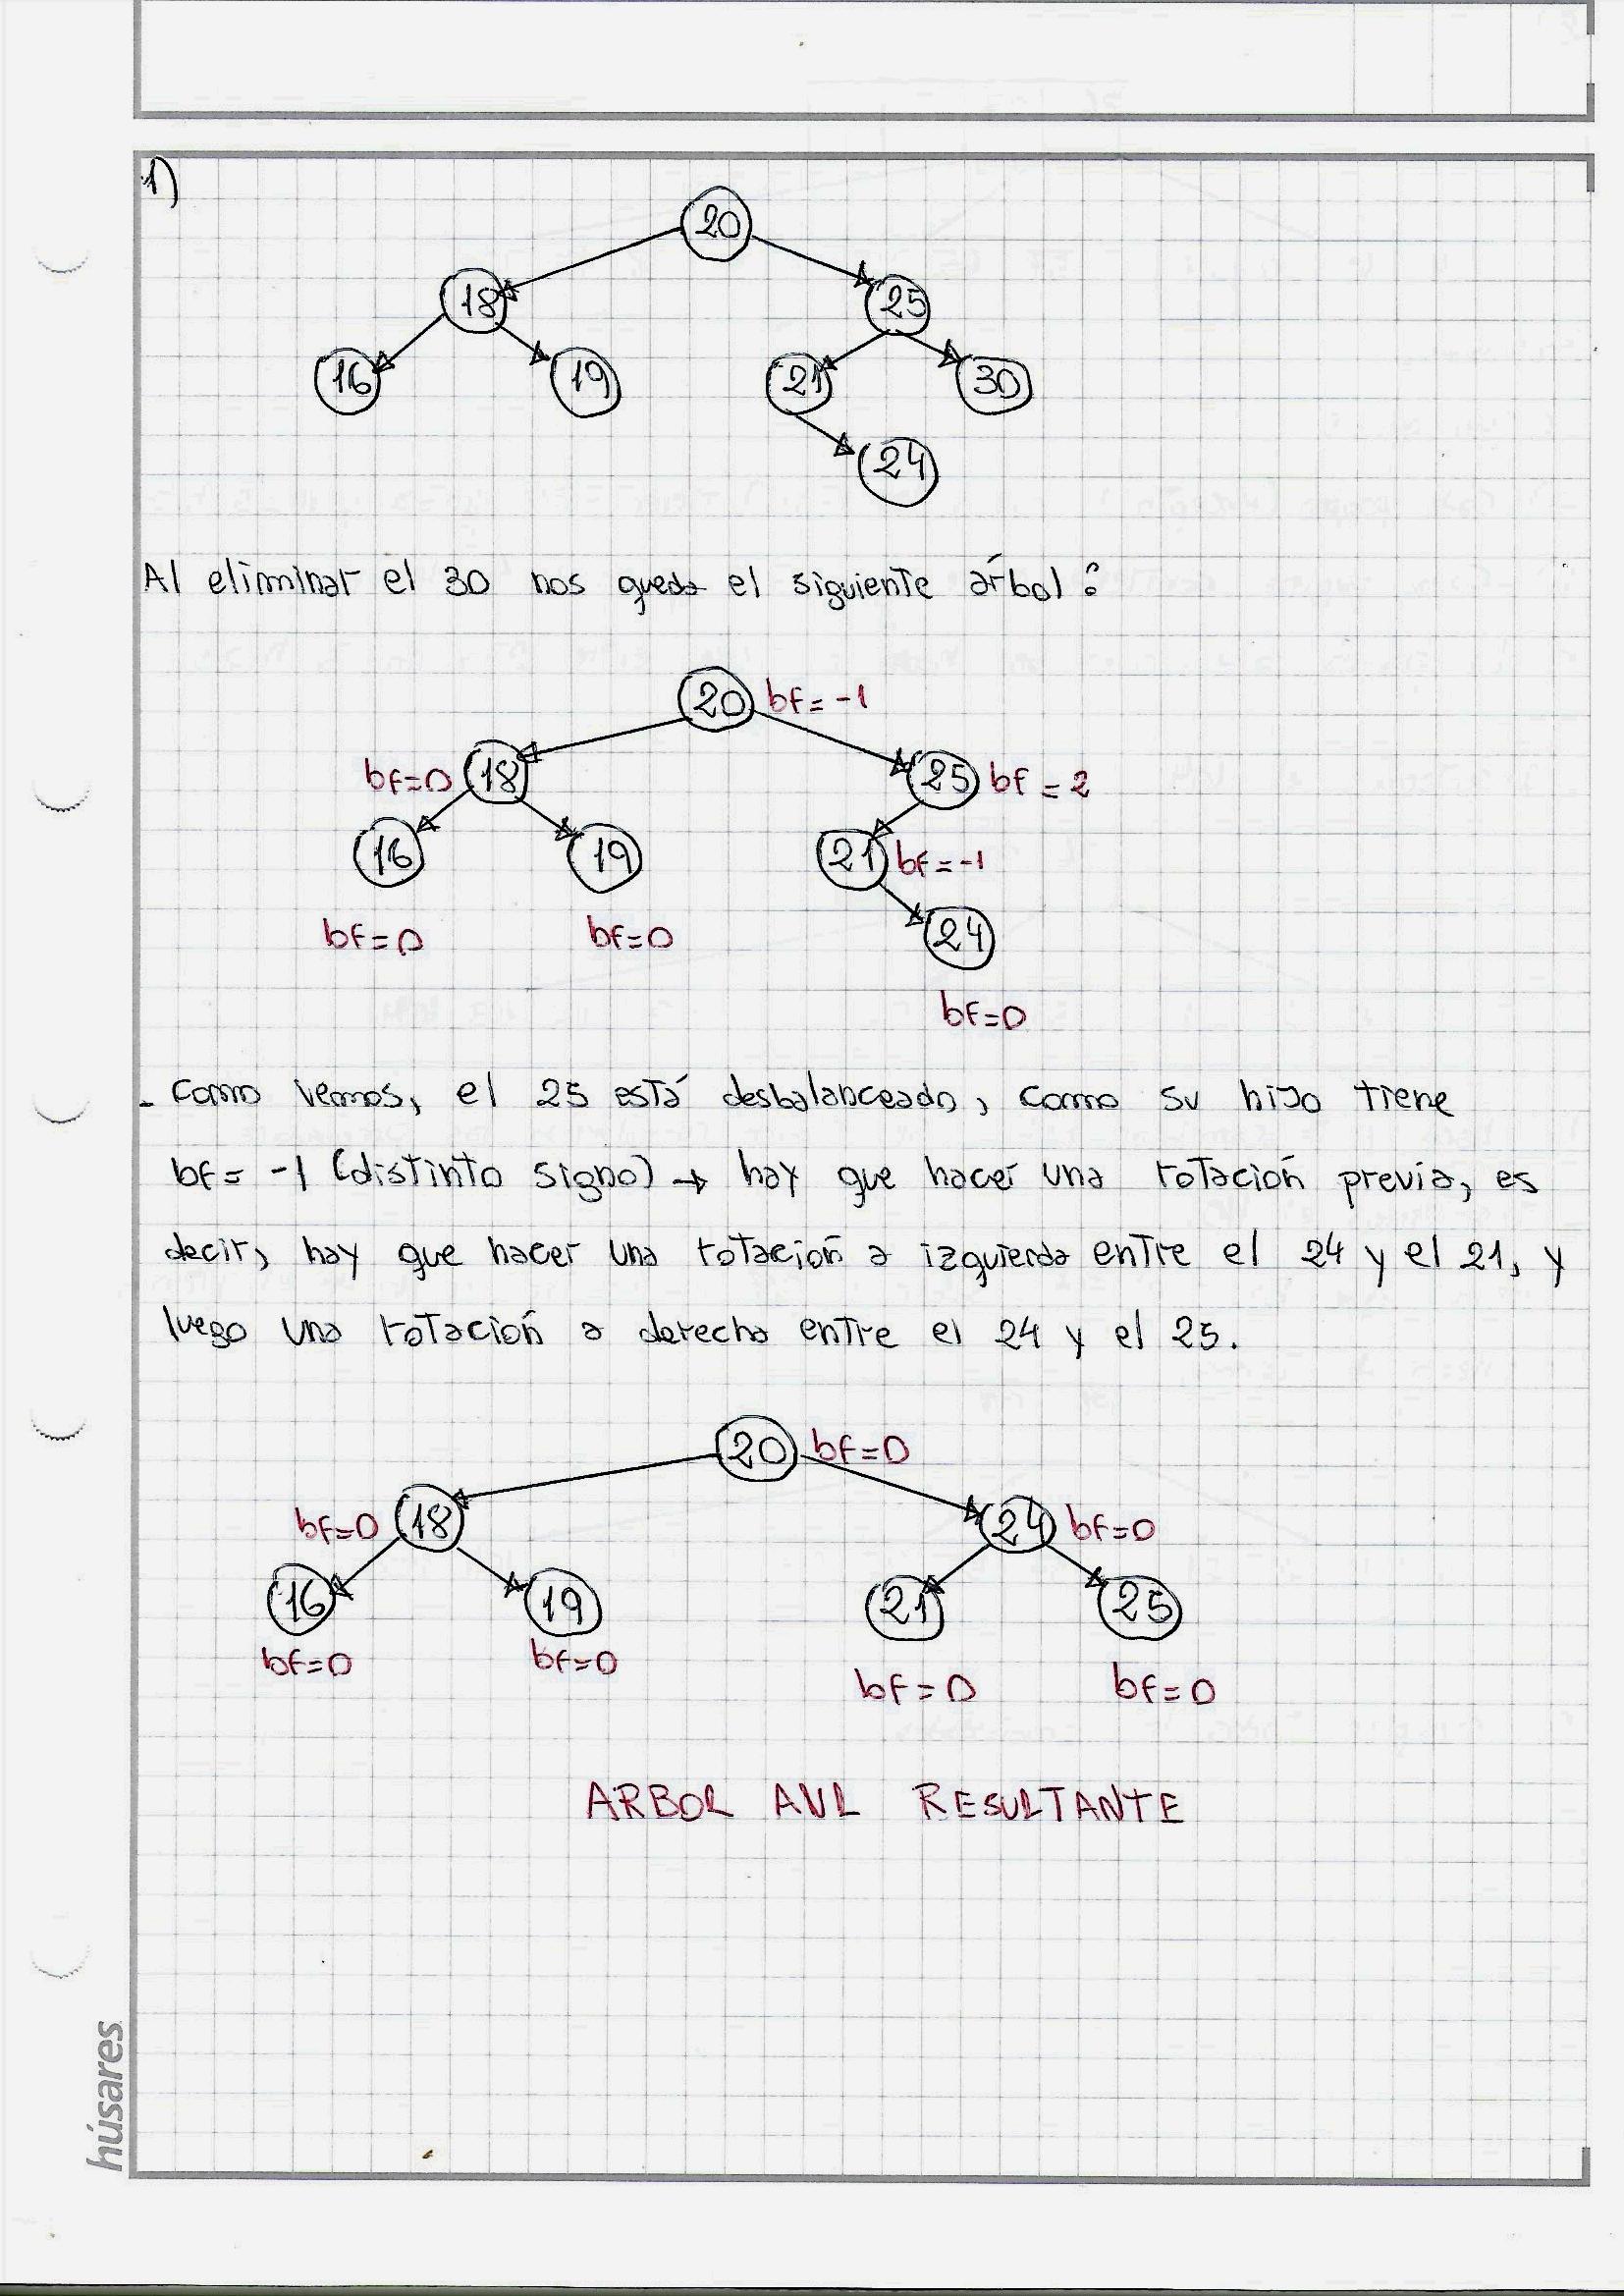 1)
20
18 25
16 19 21 30
24
Al eliminar el 30 nos queda el siguiente árbol:
20 bf=-1
bf=0 18 25 bf=2
16 19 21 bf=-1
bf=0 bf=0 24
bf=0
- Como vemos, el 25 está desbalanceado, como su hijo tiene
bf= -1 (distinto signo) → hay que hacer una rotación previa, es
decir, hay que hacer una rotación a izquierda entre el 24 y el 21, y
luego una rotación a derecha entre el 24 y el 25.
20 bf=0
bf=0 18 24 bf=0
16 19 21 25
bf=0 bf=0 bf=0 bf=0
ARBOL AVL RESULTANTE
húsares